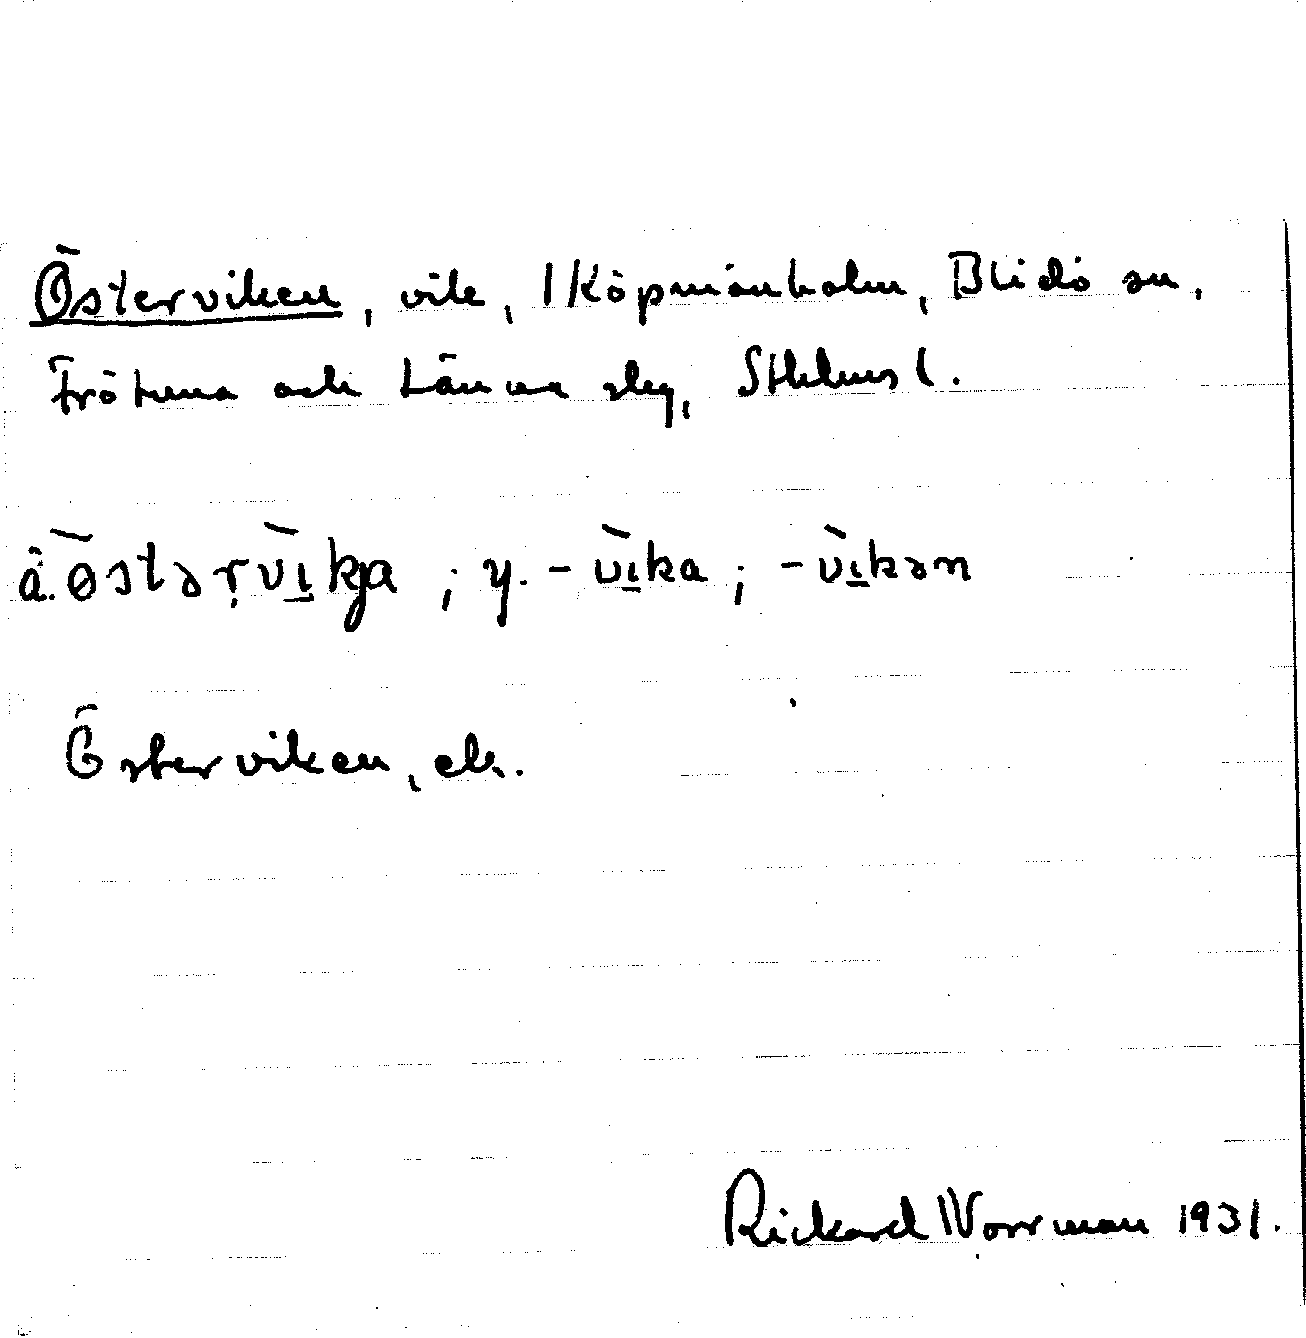 Österviken, vik, Köpmanholm, Blidö sn,
Frötuna och Länna slg, Sthlms l.
å. östərvikja ; y. - vika ; - vikən
Österviken, ek.
Rickard Worrman 1931.